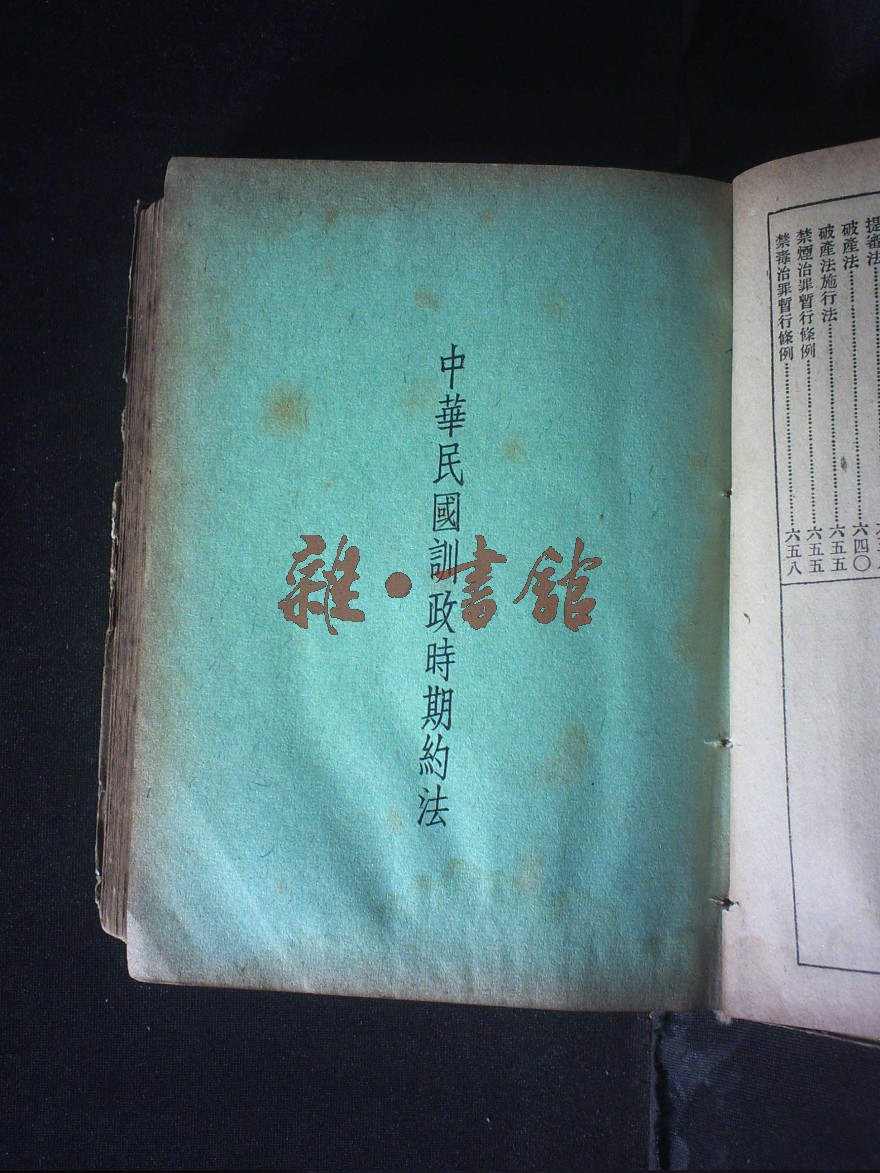 提審法
破產法⋯⋯六四〇
破產法施行法⋯⋯六五五
禁煙治罪暫行條例⋯⋯六五五
禁毒治罪暫行條例⋯⋯六五八
中華民國訓政時期約法
雜·書館